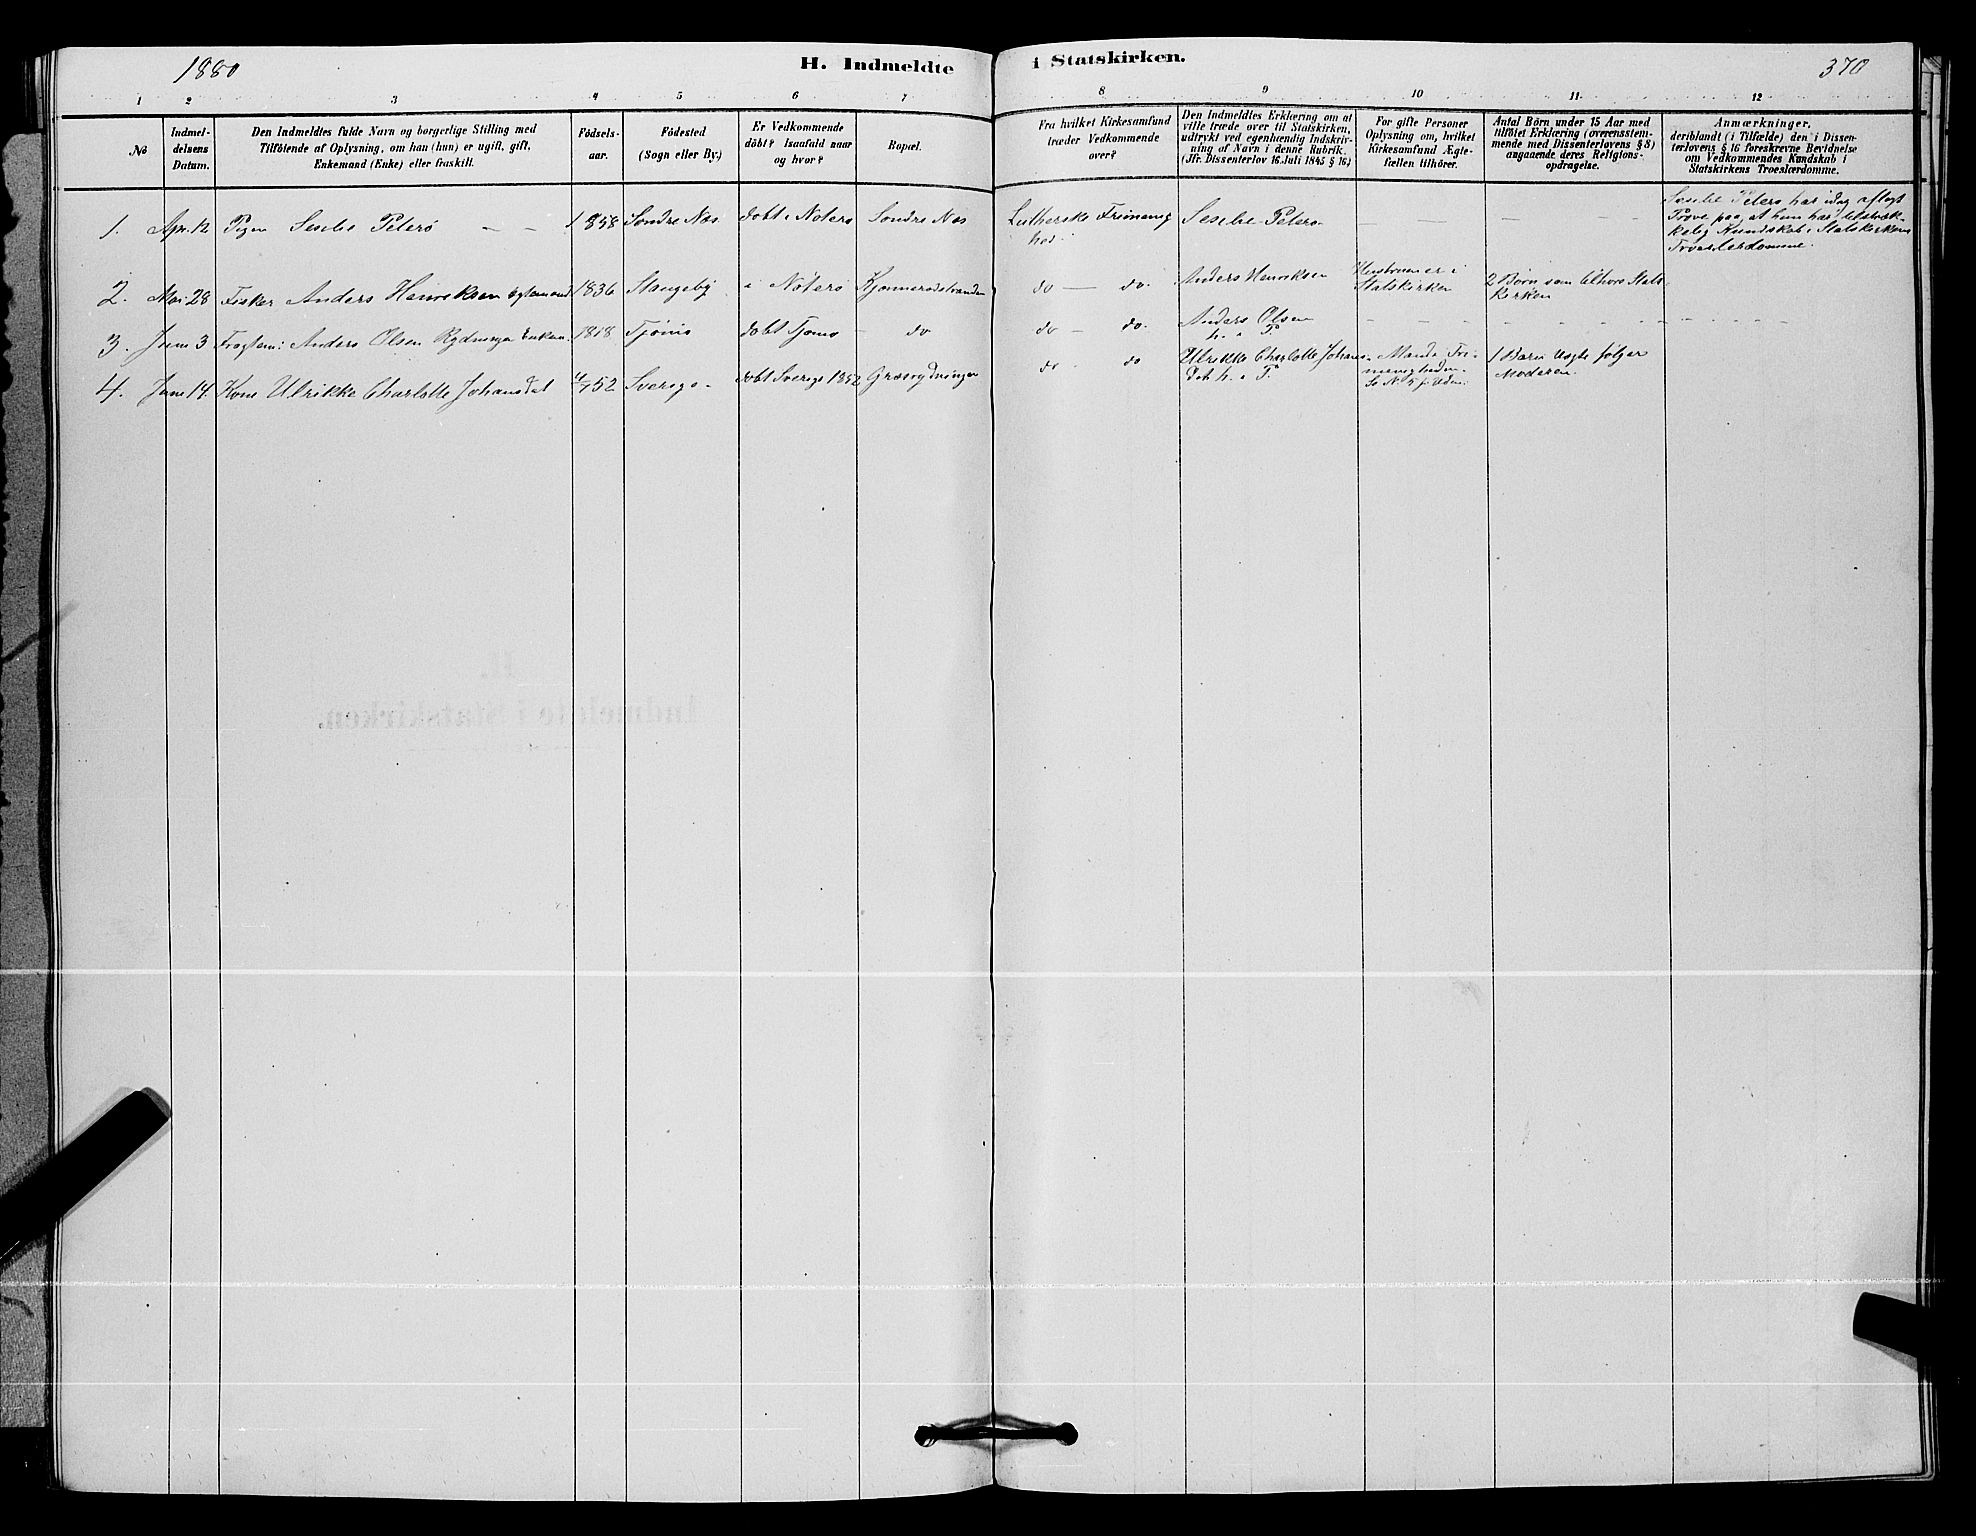 1880
H. Indmeldte i Statskirken.
370
1 2 3 4 5 6 7 8 9 10 11 12
No
Indmel-
delsens
Datum.
Den Indmeldtes fulde Navn og borgerlige Stilling med
Tilföiende af Oplysning, om han (hun) er ugift, gift,
Enkemand (Enke) eller fraskilt.
Födsels-
aar.
Födested
(Sogn eller By.)
Er Vedkommende
döbt? Isaafald naar
og hvor?
Bopæl.
Fra hvilket Kirkesamfund
træder Vedkommende
over?
Den Indmeldtes Erklæring om at
ville træde over til Statskirken,
udtrykt ved egenhændig Indskriv-
ning af Navn i denne Rubrik.
(Jfr. Dissenterlov 16 Juli 1845 § 16.)
For gifte Personer
Oplysning om, hvilket
Kirkesamfund Ægte-
fællen tilhörer.
Antal Börn under 15 Aar med
tilföiet Erklæring (overensstem-
mende med Dissenterlovens § 8)
angaaende deres Religions-
opdragelse.
Anmærkninger,
deriblandt (i Tilfælde) den i Dissen-
terlovens § 16 foreskrevne Bevidnelse
om Vedkommendes Kundskab i
Statskirkens Troeslærdomme.
1. Apr. 12 Pigen Sesebe Peterö — — 1858 Söndre Næs döbt i Nöterö Söndre Næs
Lutherske Frimenig
hed.
Sesebe Peterö — — —
Sesebe Peterö har idag aflagt
Pröve paa, at hun har tilstræk-
kelig Kundskab i Statskirkens
Troeslærdomme.
2. Mai 28 Fisker Anders Henriksen Egtemand 1836 Stangeby i Nöterö
do — do. Anders Henriksen
Hustruen er i
Statskirken
2 Börn som tilhöre Stats-
kirken
3. Juni 3 Anders Olsen 1818 Tjömö döbt Tjömö — do
do — do.
Anders Olsen
4. Juni 14. Kone Ulrikke Charlotte Johansdat 4/7 52 Sverige - döbt Sverige 1852
do . do
Ulrikke Charlotte Johans-
dat.
Manden i Fri-
menigheden.
1 Barn
Moderen